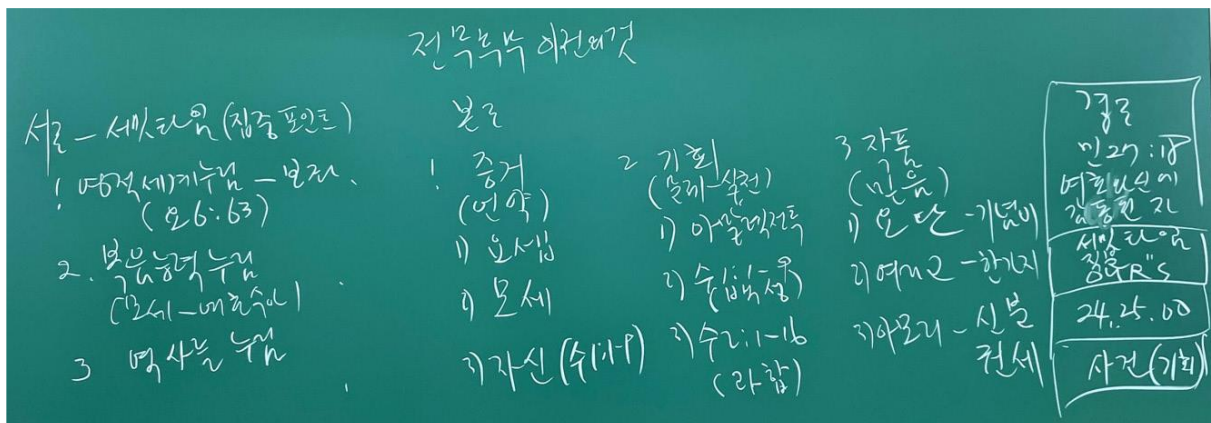 전무후무 이전의것
서론 - 세밋타임 (집중 포인트)
1. 영적세계누림 - 보좌.
(요6:63)
2. 복음능력누림
(모세 - 여호수아)
3 역사를 누림
본론
1. 증거
(언약)
1) 요셉
2) 모세
3) 자신 (수1:1-9)
2 기회
(실천)
1) 아말렉전투
2)
3) 수2:1-16
(라합)
3 작품
(믿음)
1) 요단 - 기념비
2) 여리고 - 한가지
3) 아모리 - 신분
권세
결론
민27:18
여호와 신에
감동된 자
세밋타임
집중 R"S
24.25.00
사건 (기회)